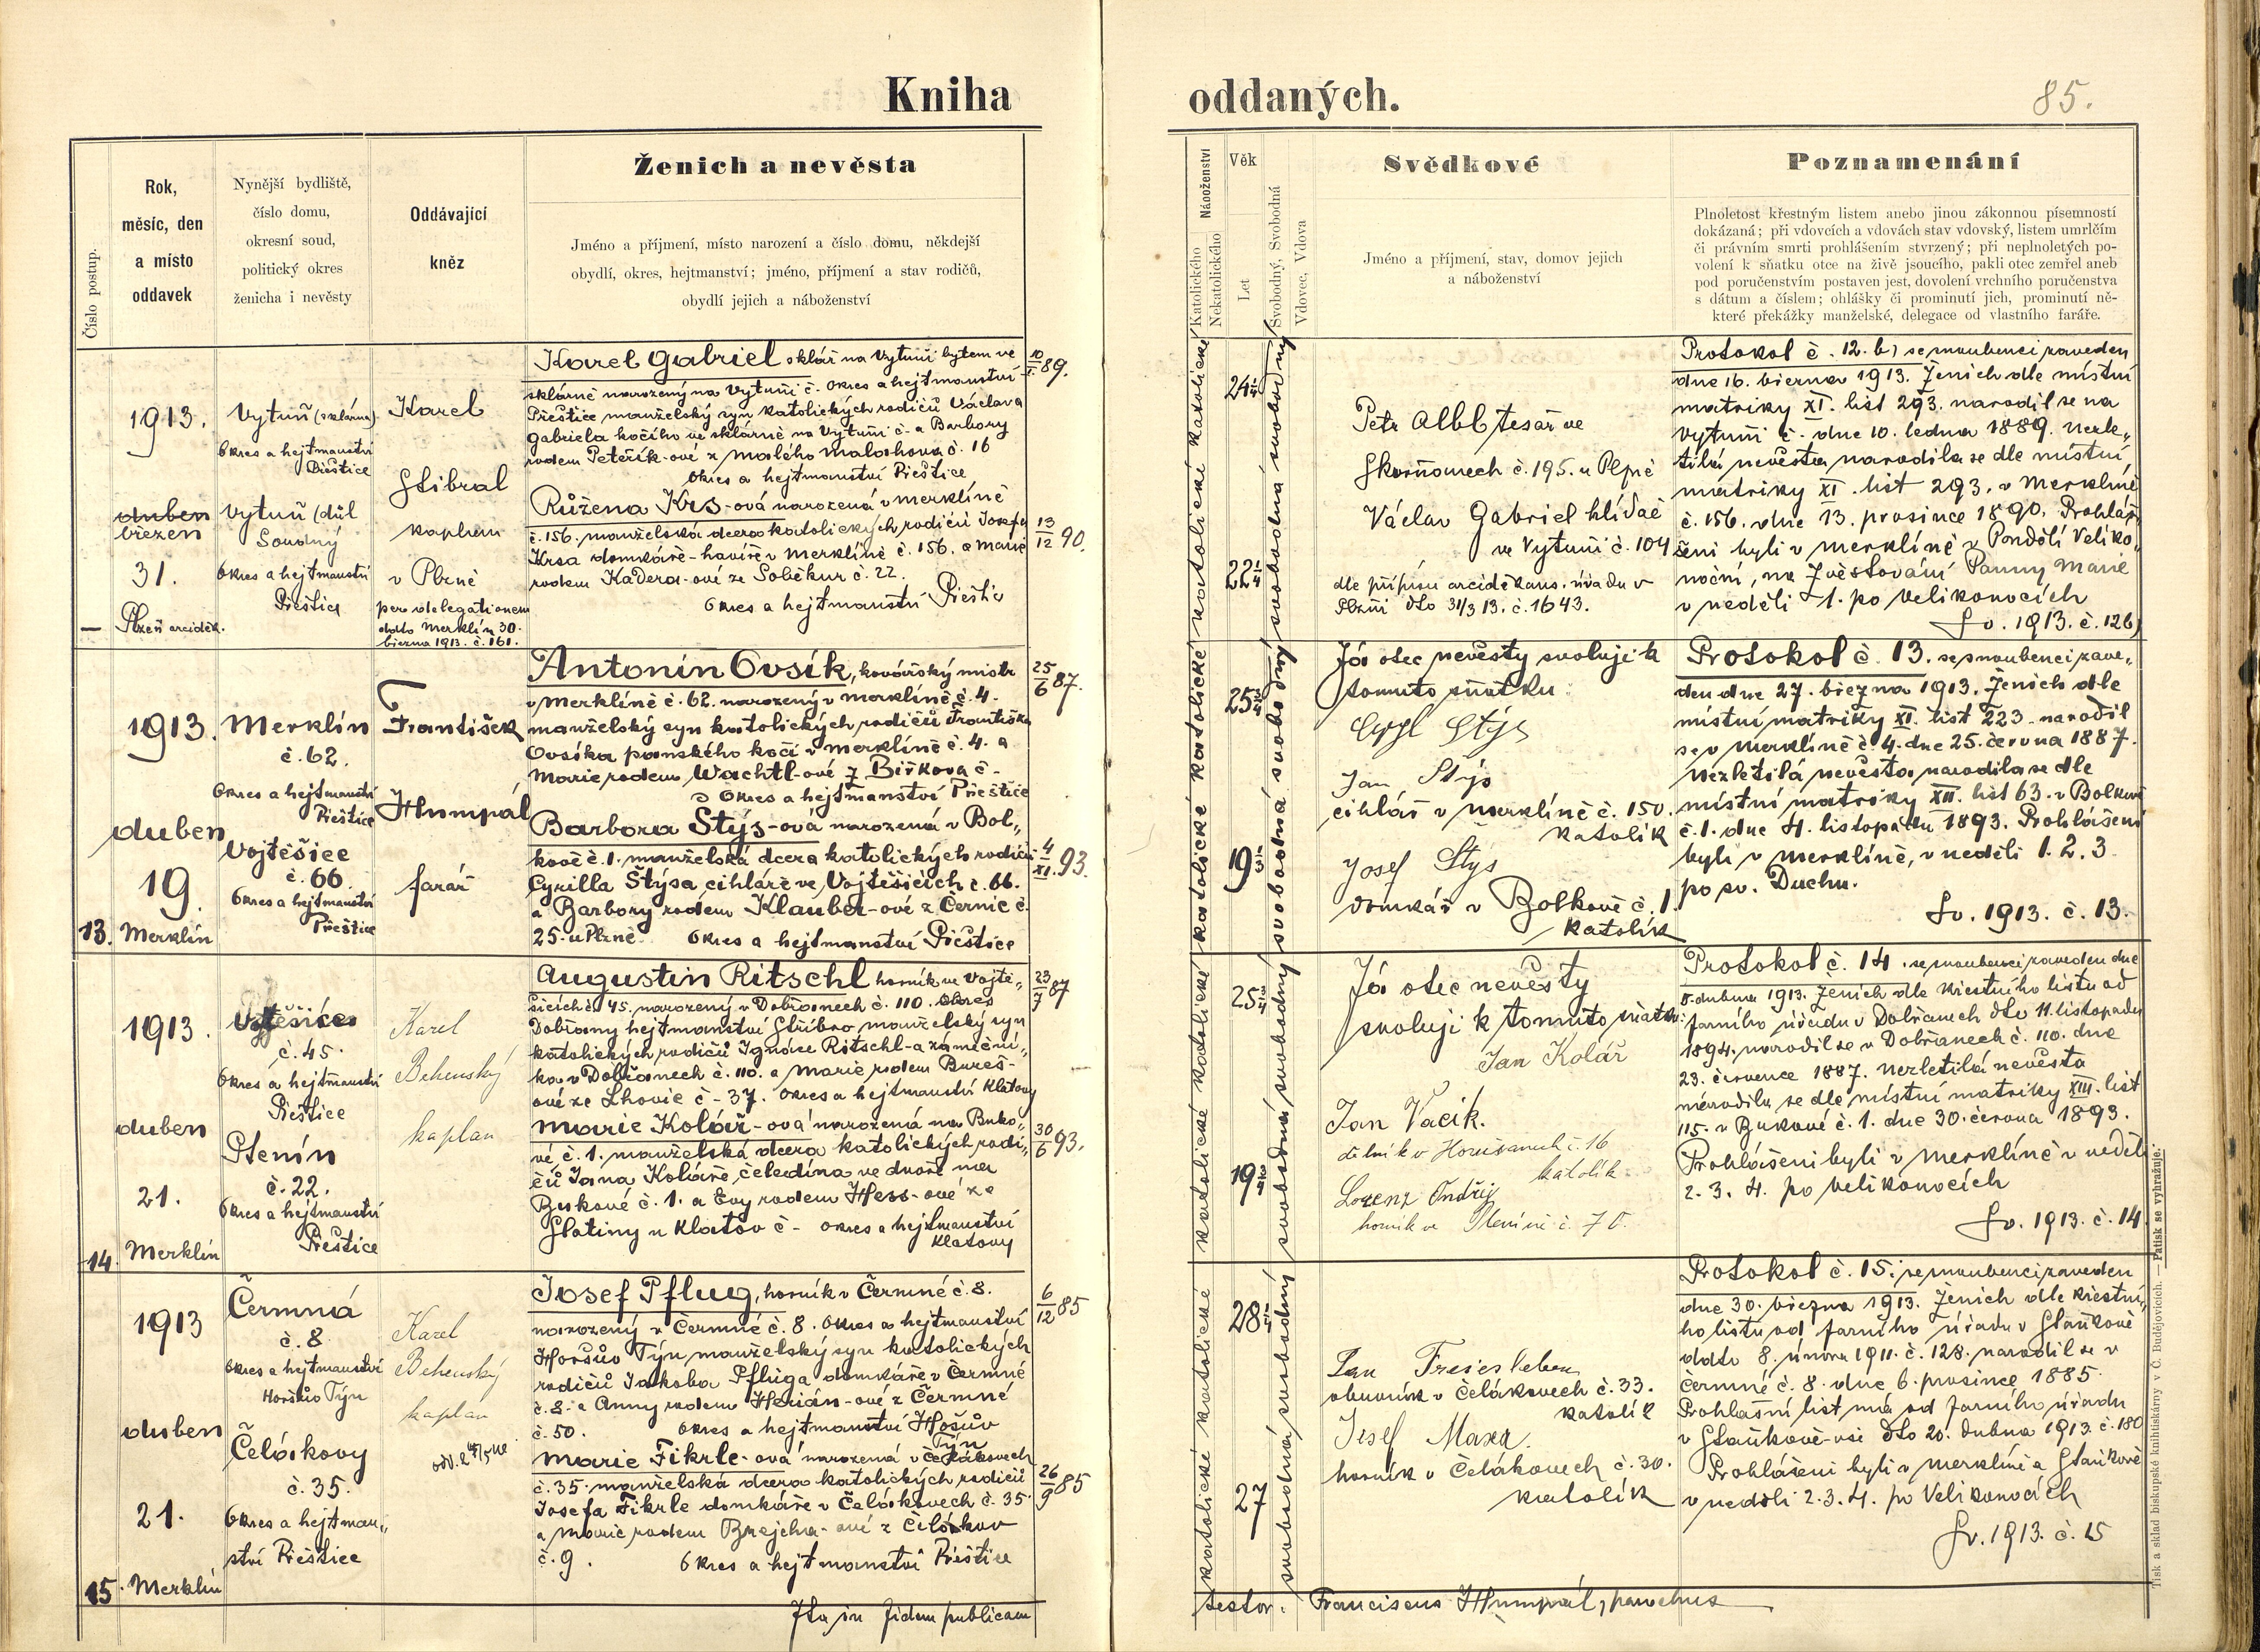 Kniha
oddaných.
85.
Číslo postup.
Rok,
měsíc, den
a místo
oddavek
Nynější bydliště,
číslo domu,
okresní soud,
politický okres
ženicha i nevěsty
Oddávající
kněz
Ženich a nevěsta
Jméno a příjmení, místo narození a číslo domu, někdejší
obydlí, okres, hejtmanství; jméno, příjmení a stav rodičů,
obydlí jejich a náboženství
Náboženství
Katolického
Nekatolického
Věk
Let
Svobodný, Svobodná
Vdovec, Vdova
Svědkové
Jméno a příjmení, stav, domov jejich
a náboženství
Poznamenání
Plnoletost křestným listem anebo jinou zákonnou písemností
dokázaná; při vdovcích a vdovách stav vdovský, listem umrlčím
či právním smrti prohlášením stvrzený; při neplnoletých po-
volení k sňatku otce na živě jsoucího, pakli otec zemřel aneb
pod poručenstvím postaven jest, dovolení vrchního poručenstva
s dátum a číslem; ohlášky či prominutí jich, prominutí ně-
které překážky manželské, delegace od vlastního faráře.
1913.
duben
březen
31.
— Plzeň arciděk.
Vytuň (sklárna)
Okres a hejtmanství
Přeštice
Vytuň (důl
Soudný
Okres a hejtmanství
Přeštice
Karel
Stibral
kaplan
v Plzně
per delegationem
ddto Merklín 30.
března 1913. č. 161.
Karel Gabriel sklář na Vytuni bytem ve
sklárně narozený na Vytuni č. okres a hejtmanství
Přeštice manželský syn katolických rodičů Václava
Gabriela kočího ve sklárně na Vytuni č. a Barbory
rodem Peteřík-ové z Malého Malahova č. 16
okres a hejtmanství Přeštice
Růžena Krs-ová narozená v Merklíně
č. 156. manželská dcera katolických rodičů Josefa
Krsa domkáře-havíře v Merklíně č. 156. a Marie
rodem Kaděra-ové ze Soběkur č. 22.
Okres a hejtmanství Přeštic
10/I. 89.
13/12 90.
24 1/4
22 1/4
katolické katolické
svobodná svobodný
Petr Albl tesař ve
Skvrňanech č. 195. u Plzně
Václav Gabriel hlídač
ve Vytuni č. 104
dle přípisu arciděkans. úřadu v
Plzni dto 31/3 13. č. 1643.
Protokol č. 12. b) se snoubenci zaveden
dne 16. března 1913. Ženich dle místní
matriky XI. list 293. narodil se na
Vytuni č. dne 10. ledna 1889. Nezle„
tilá nevěsta narodila se dle místní
matriky XI. list 293. v Merklíně
č. 156. dne 13. prosince 1890. Prohláš„
šeni byli v Merklíně v Pondělí Veliko„
noční, na Zvěstování Panny Marie
v neděli 1. po Velikonocích
Sv. 1913. č. 12b)
1913.
duben
19.
13. Merklín
Merklín
č. 62.
Okres a hejtmanství
Přeštice
Vojtěšice
č. 66
Okres a hejtmanství
Přeštice
František
Humpál
farář
Antonín Ovsík, kovářský mistr
v Merklíně č. 62. narozený v Merklíně č. 4.
manželský syn katolických rodičů Františka
Ovsíka panského kočí v Merklíně č. 4. a
Marie rodem Wachtl-ové z Biřkova č.
Okres a hejtmanství Přeštice
Barbora Stýs-ová narozená v Bol„
kově č. 1. manželská dcera katolických rodičů
Cyrilla Stýsa cihláře ve Vojtěšicích č. 66.
a Barbory rodem Klauber-ové z Černic č.
25. u Plzně. Okres a hejtmanství Přeštice
25/6 87.
4/XI. 93.
25 3/4
19 1/3
katolické katolické
svobodná svobodný
Já otec nevěsty svoluji k
tomuto sňatku:
Cyril Stýs
Jan Stýs
cihlář v Merklíně č. 150.
katolík
Josef Stýs
domkář v Bolkově č. 1.
katolík
Protokol č. 13. se snoubenci zave„
den dne 27. března 1913. Ženich dle
místní matriky XI. list 223. narodil
se v Merklíně č. 4. dne 25. června 1887.
Nezletilá nevěsta narodila se dle
místní matriky XII. list 63. v Bolkově
č. 1. dne 4. listopadu 1893. Prohlášeni
byli v Merklíně, v neděli 1. 2. 3.
po sv. Duchu.
Sv. 1913. č. 13.
1913.
duben
21.
14. Merklín
Vojtěšice
č. 45.
Okres a hejtmanství
Přeštice
Ptenín
č. 22.
Okres a hejtmanství
Přeštice
Karel
Behenský
kaplan
Augustin Ritschl horník ve Vojtě„
šicích č. 45. narozený v Dobřanech č. 110. okres
Dobřany hejtmanství Stříbro manželský syn
katolických rodičů Ignáce Ritschl-a zámeční„
ka v Dobřanech č. 110. a Marie rodem Bureš-
ové ze Lhovic č. 37. okres a hejtmanství Klatovy
Marie Kolář-ová narozená na Buko„
vé č. 1. manželská dcera katolických rodi„
čů Jana Koláře, čeledína ve dvoře na
Bukové č. 1. a Evy rodem Hess-ové ze
Slatiny u Klatov č. okres a hejtmanství
Klatovy
23/7 87
30/6 93.
25 3/4
19 3/4
katolické katolické
svobodná svobodný
Já otec nevěsty
svoluji k tomuto sňatku:
Jan Kolář
Jan Vacik.
dělník v Horušanech č. 16
katolík
Lorenz Ondřej
horník ve Ptenině č. 70.
Protokol č. 14. se snoubenci zaveden dne
5. dubna 1913. Ženich dle křestního listu od
farního úřadu v Dobřanech dto 11. listopadu
1894. narodil se v Dobřanech č. 110. dne
23. července 1887. Nezletilá nevěsta
narodila se dle místní matriky XIII. list
115. v Bukové č. 1. dne 30. června 1893.
Prohlášeni byli v Merklíně v neděli
2. 3. 4. po Velikonocích
Sv. 1913. č. 14
1913
duben
21.
15. Merklín
Čermná
č. 8
Okres a hejtmanství
Horšův Týn
Čelákovy
č. 35.
Okres a hejtman„
ství Přeštice
Karel
Behenský
kaplan
Josef Pflug, horník v Čermné č. 8.
narozený v Čermné č. 8. okres a hejtmanství
Horšův Týn manželský syn katolických
rodičů Jakoba Pfluga domkáře v Čermné
č. 8. a Anny rodem Herián-ové z Čermné
č. 50. okres a hejtmanství Hošův
Týn
Marie Fikrle-ová narozená v Čelákovech
č. 35. manželská dcera katolických rodičů
Josefa Fikrle domkáře v Čelákovech č. 35
a Marie rodem Brejcha-ové z Čelákov
č. 9. Okres a hejtmanství Přeštice
6/12 85
26/9 85
28 1/4
27
katolické katolické
svobodná svobodný
Jan Freiesleben
obuvník v Čelákovech č. 33.
katolík
Josef Maxa.
horník v Čelákovech č. 30.
katolík
Protokol č. 15. se snoubenci zaveden
dne 30. března 1913. Ženich dle křestní„
ho listu od farního úřadu v Staňkově
ddto 8. února 1911. č. 128. narodil se v
Čermné č. 8. dne 6. prosince 1885.
Prohlašní list má od farního úřadu
v Staňkově-vsi dto 20. dubna 1913. č. 180
Prohlášeni byli v Merklíně a Staňkově
v neděli 2. 3. 4. po Velikonocích
Sv. 1913. č. 15
Ita in fidem publicam
testor: Franciscus Humpál, parochus
Tisk a sklad biskupské knihtiskárny v Č. Budějovicích. — Patisk se vyhražuje.